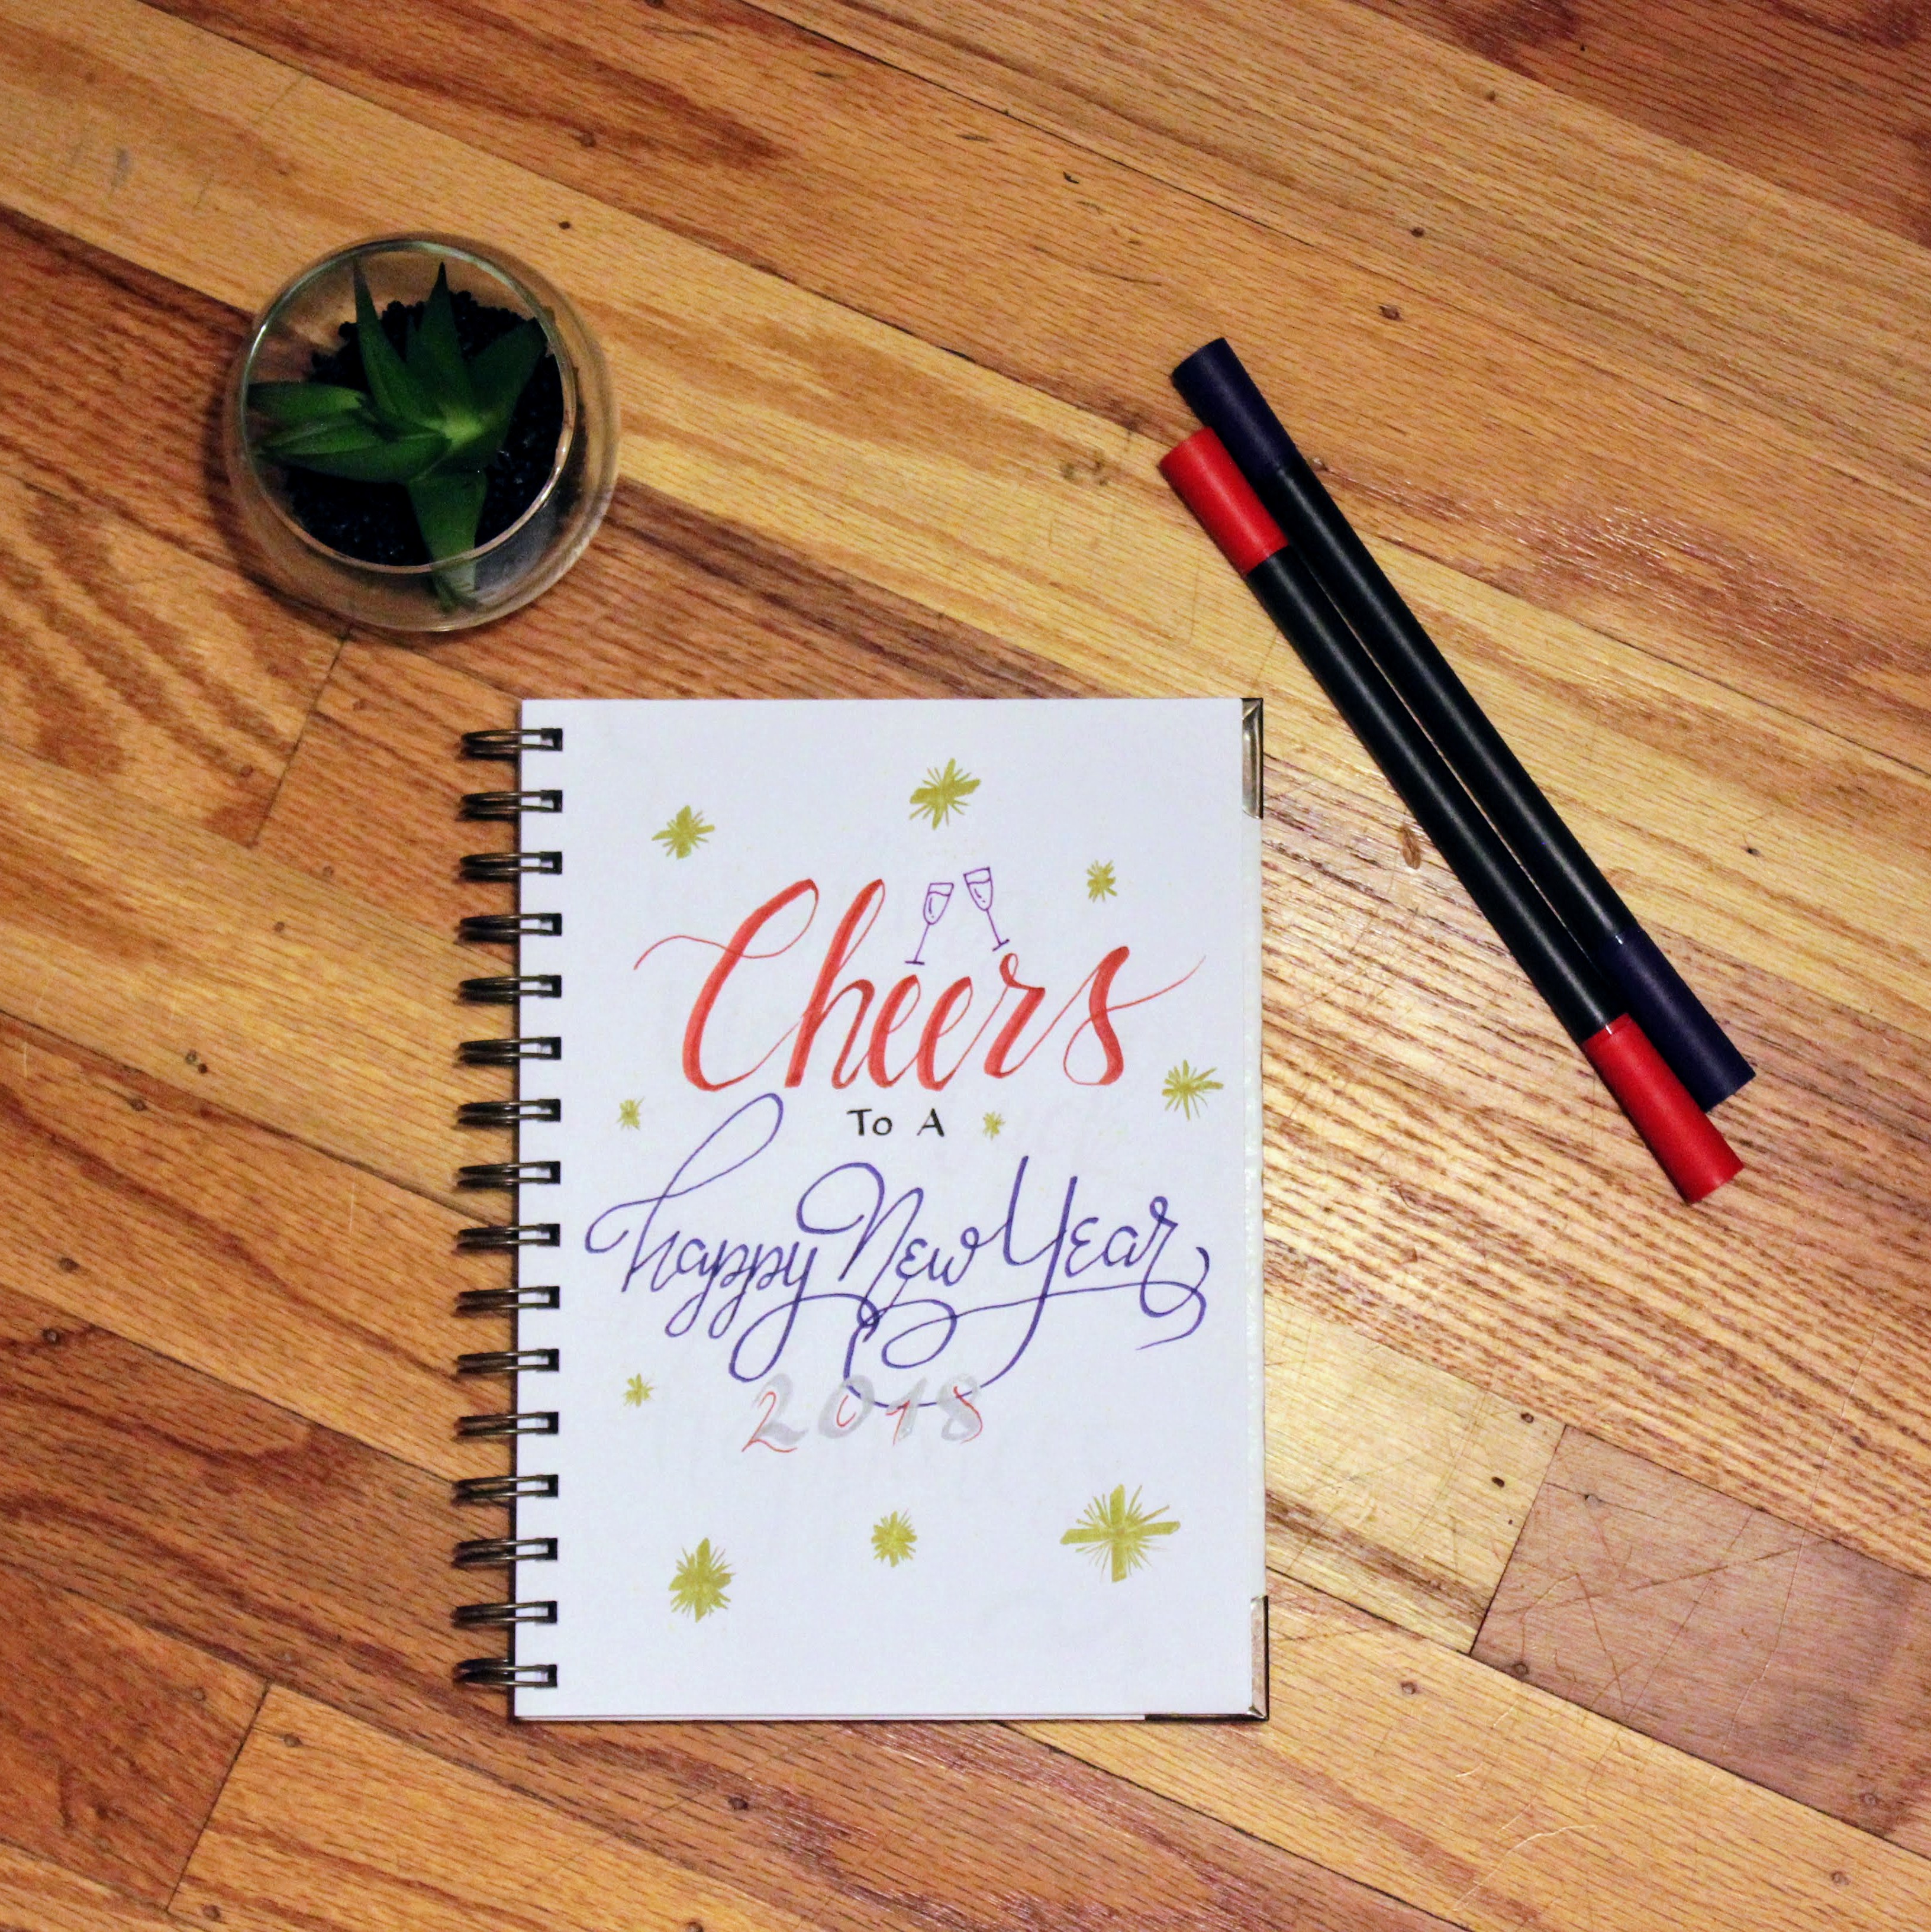 Cheers
To A
happy New Year
2018